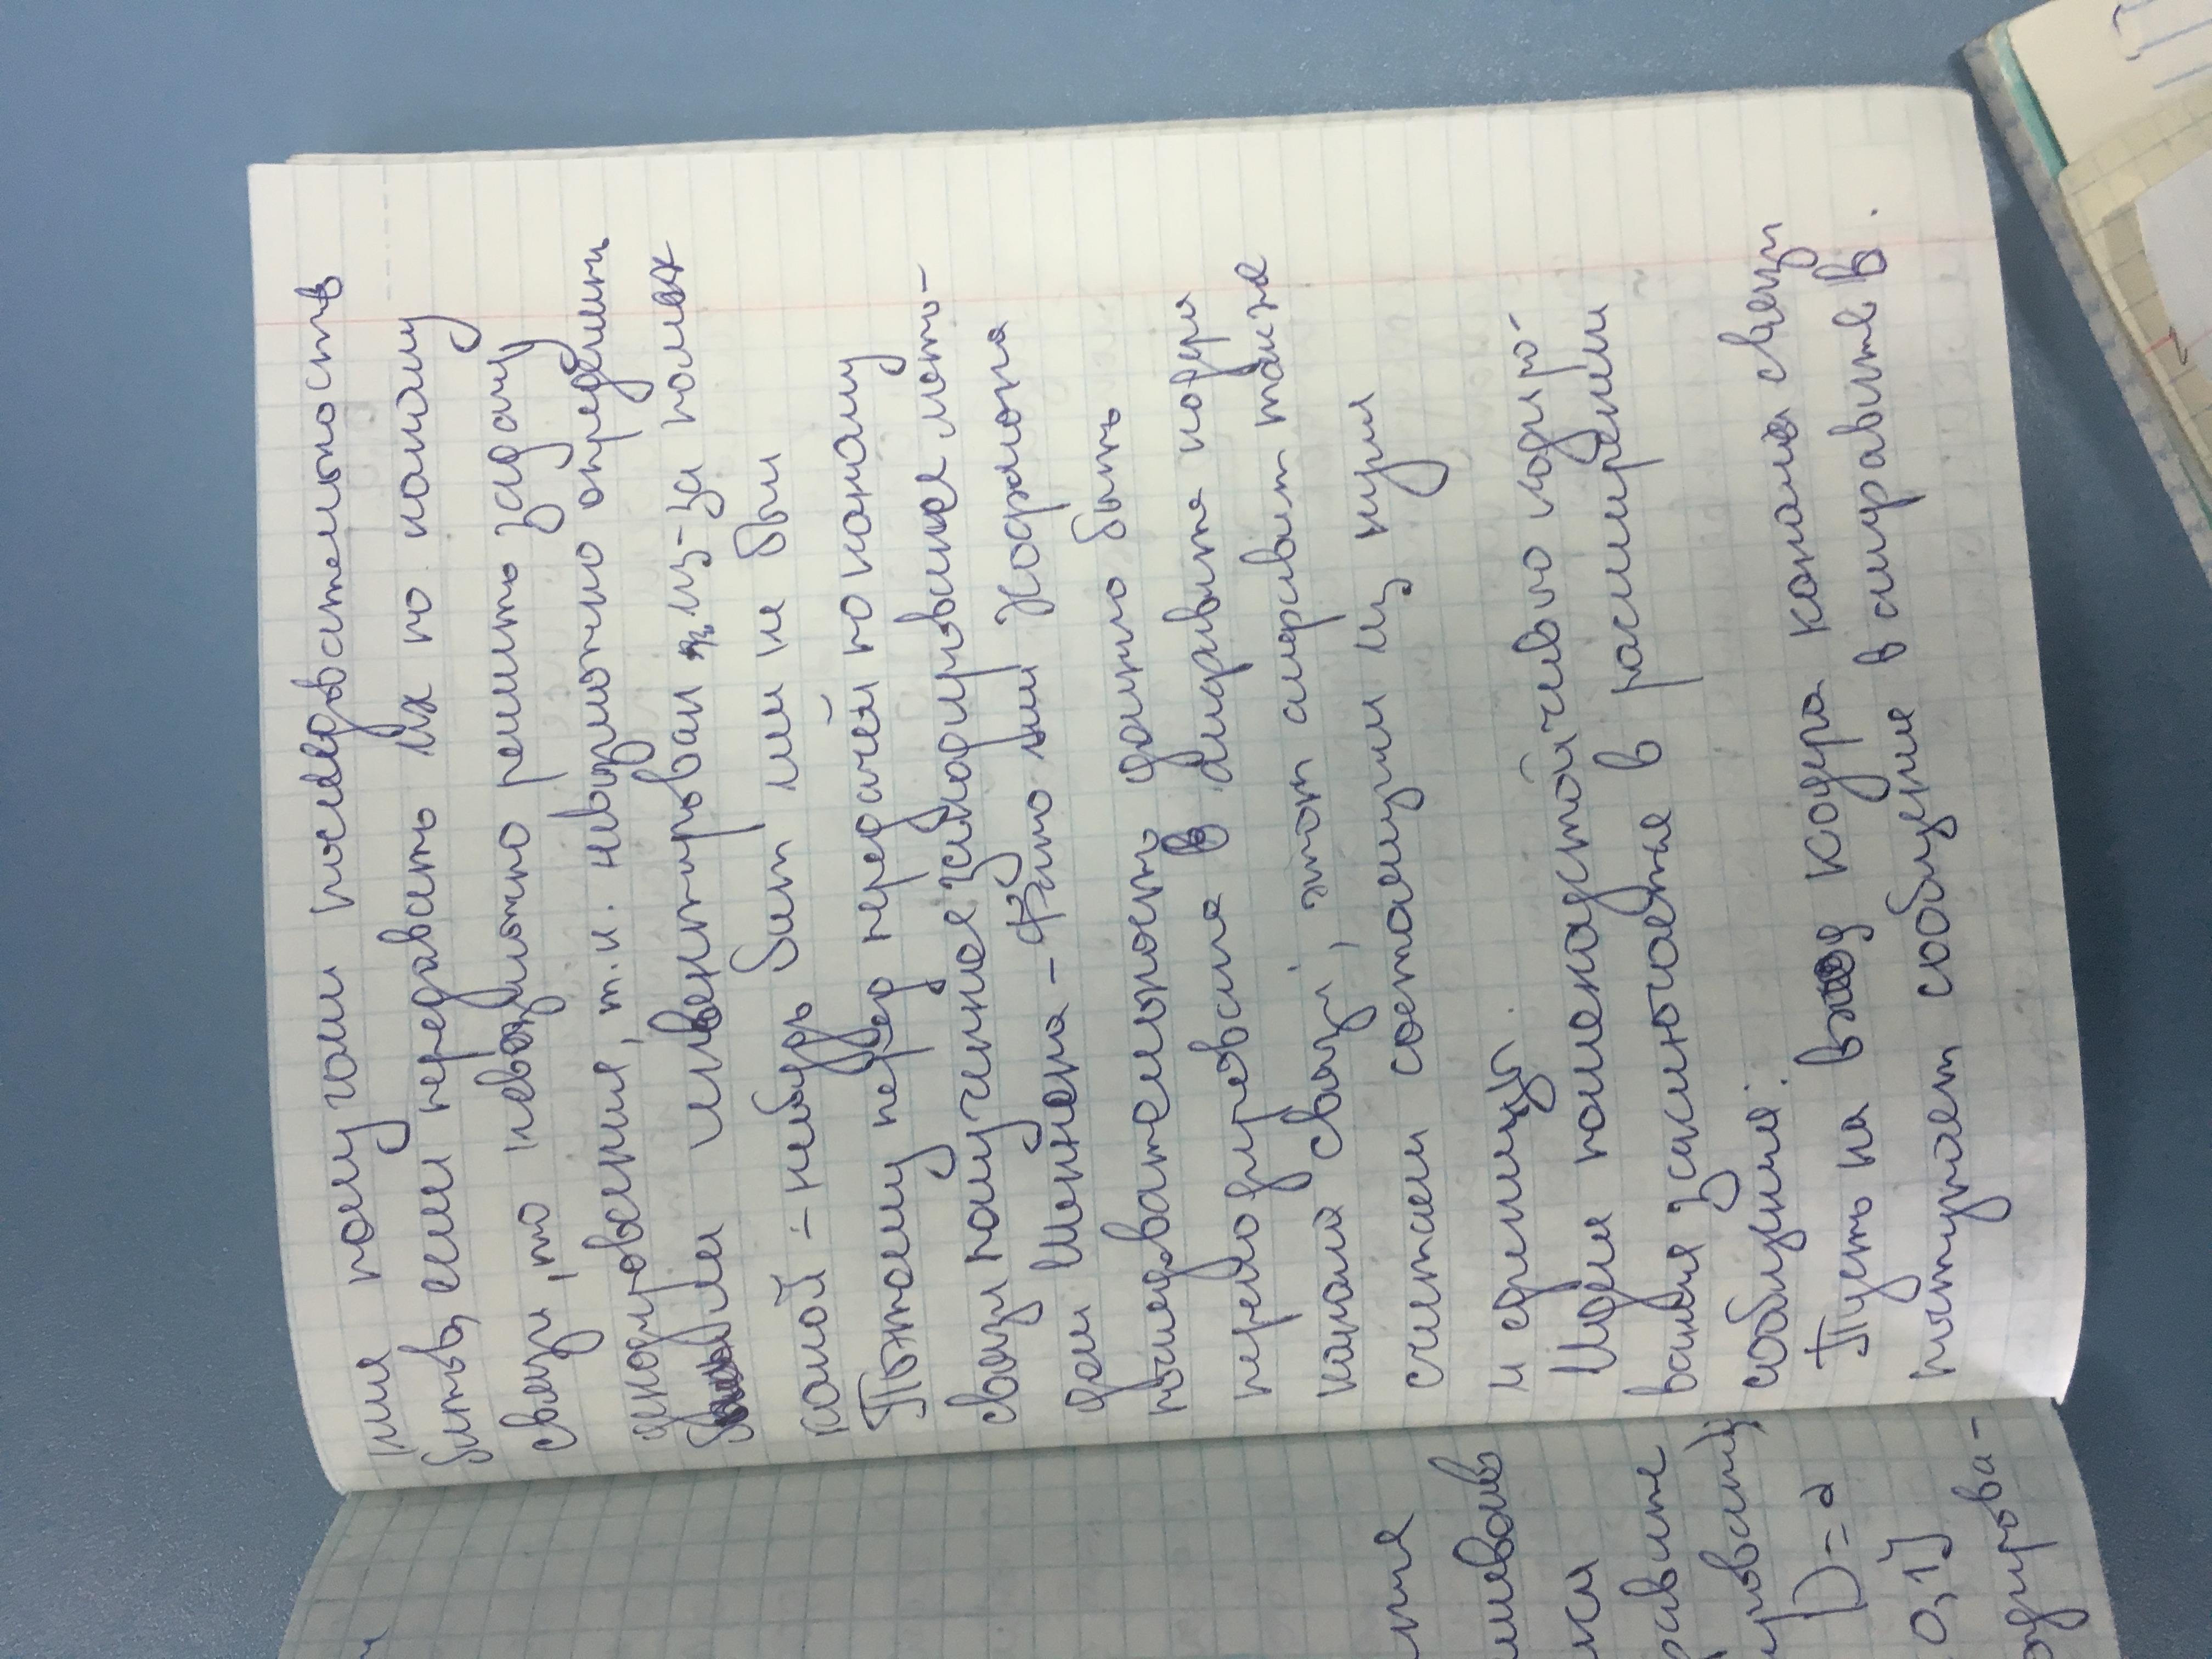 ния получаем последовательность
битов, если передавать их по каналу
связи, то невозможно решить задачу
декодирования, т.к. невозможно определить
был ли инвентирован из-за помех
какой-нибудь бит или не был
Поэтому перед передачей по каналу
связи полученная закодированная мето-
дом Шеннона-Фано или Хофмана
последовательность должна быть
перекодирована в алфавите кодера
канала связи; этот алфавит также
считаем состоящим из нуля
и единицы.
Идея помехоустойчивого кодиро-
вания заключается в расширении
сообщения:
Пусть на вход кодера канала связи
поступает сообщение в алфавите B.
D=2
0,1}
одирова-